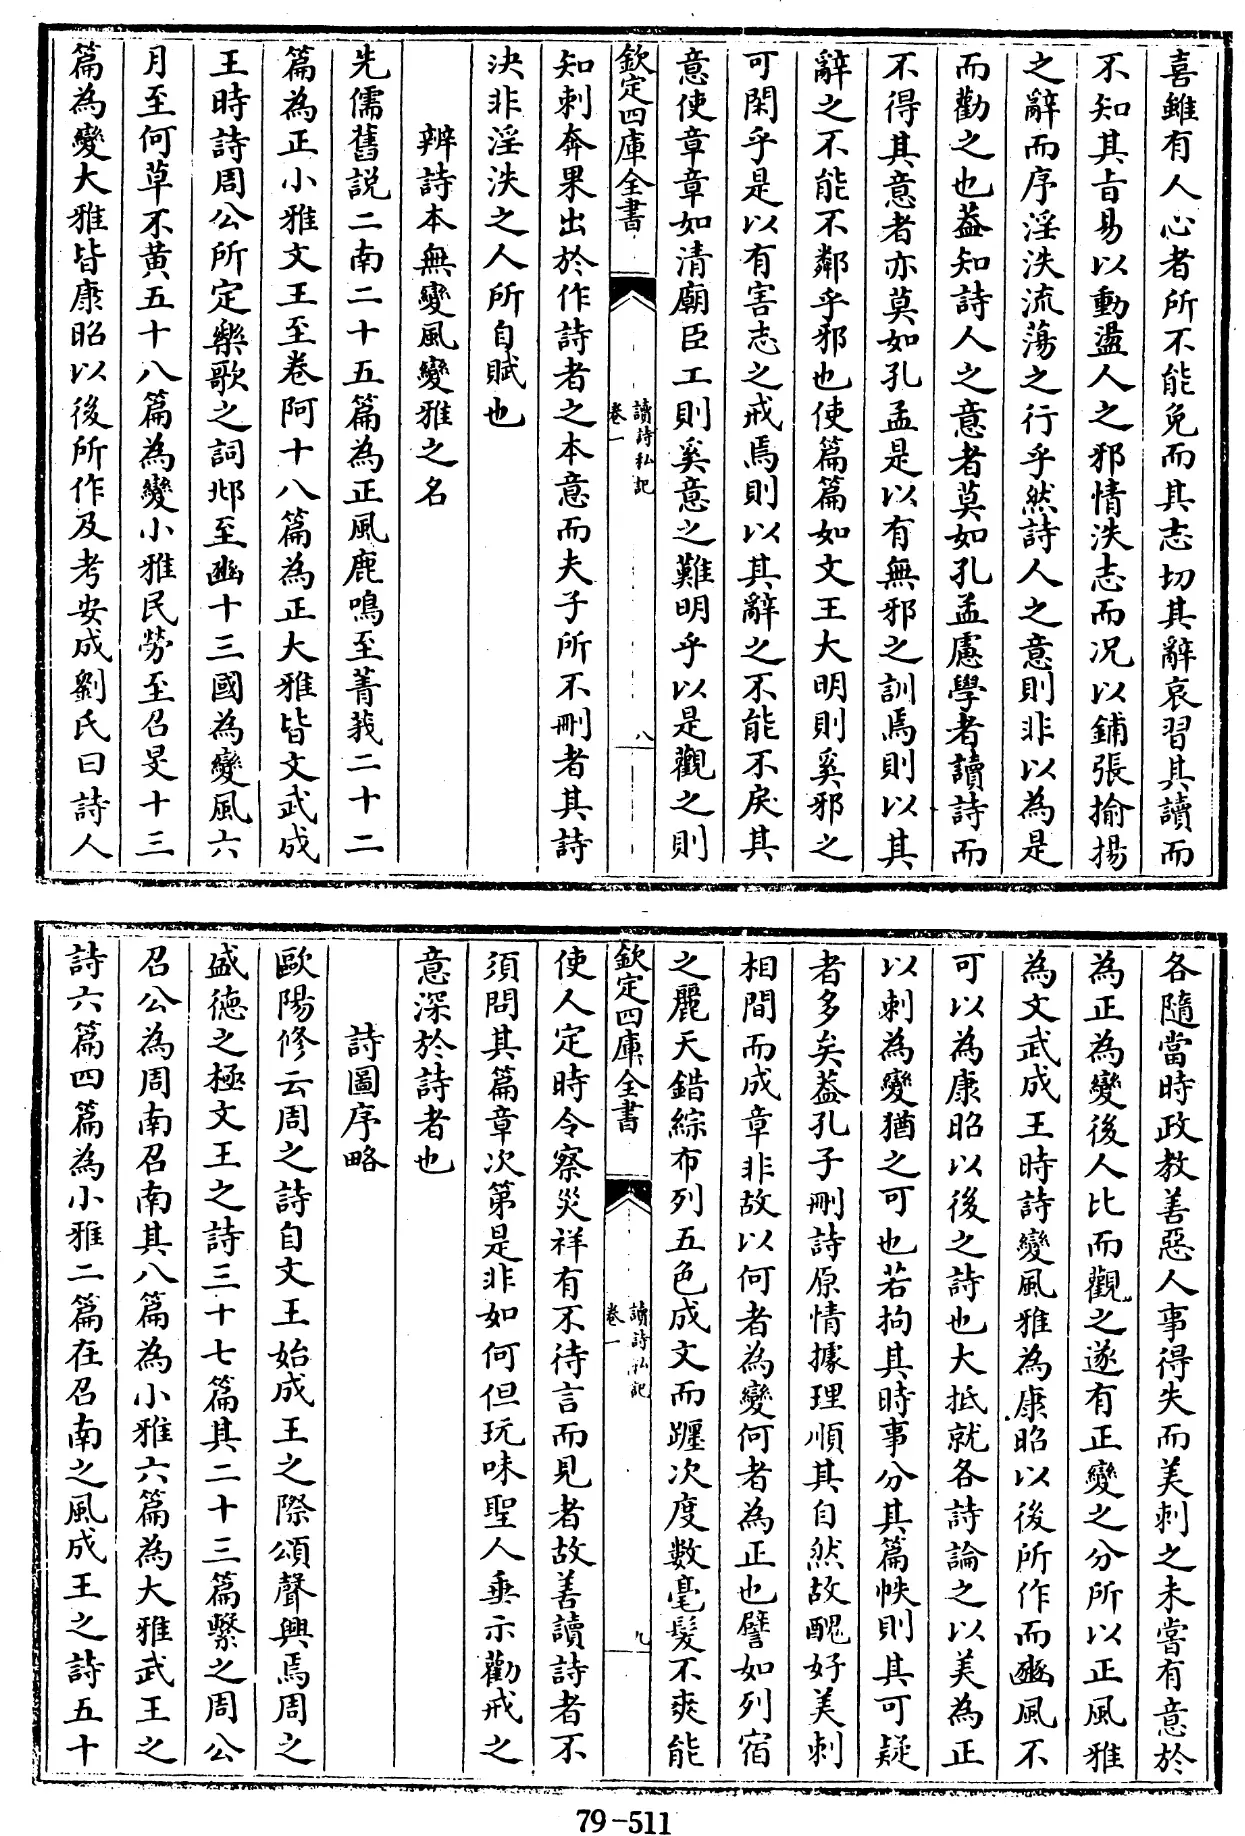 喜雖有人心者所不能免而其志切其辭哀習其讀而
不知其㫖易以動盪人之邪情泆志而况以鋪張揄揚
之辭而序淫泆流蕩之行乎然詩人之意則非以為是
而勸之也葢知詩人之意者莫如孔孟慮學者讀詩而
不得其意者亦莫如孔孟是以有無邪之訓焉則以其
辭之不能不鄰乎邪也使篇篇如文王大明則奚邪之
可閑乎是以有害志之戒焉則以其辭之不能不戾其
意使章章如清廟臣工則奚意之難明乎以是觀之則
欽定四庫全書
讀詩私記
卷一
八
知刺奔果出於作詩者之本意而夫子所不刪者其詩
決非淫泆之人所自賦也
辨詩本無變風變雅之名
先儒舊説二南二十五篇為正風鹿鳴至菁莪二十二
篇為正小雅文王至卷阿十八篇為正大雅皆文武成
王時詩周公所定樂歌之詞邶至豳十三國為變風六
月至何草不黄五十八篇為變小雅民勞至召旻十三
篇為變大雅皆康昭以後所作及考安成劉氏曰詩人
各隨當時政教善惡人事得失而美刺之未嘗有意於
為正為變後人比而觀之遂有正變之分所以正風雅
為文武成王時詩變風雅為康昭以後所作而豳風不
可以為康昭以後之詩也大抵就各詩論之以美為正
以刺為變猶之可也若拘其時事分其篇帙則其可疑
者多矣葢孔子刪詩原情據理順其自然故醜好美刺
相間而成章非故以何者為變何者為正也譬如列宿
之麗天錯綜布列五色成文而躔次度數毫髮不爽能
欽定四庫全書
讀詩私記
卷一
九
使人定時令察災祥有不待言而見者故善讀詩者不
須問其篇章次第是非如何但玩味聖人垂示勸戒之
意深於詩者也
詩圖序略
歐陽修云周之詩自文王始成王之際頌聲興焉周之
盛德之極文王之詩三十七篇其二十三篇繫之周公
召公為周南召南其八篇為小雅六篇為大雅武王之
詩六篇四篇為小雅二篇在召南之風成王之詩五十
79-511